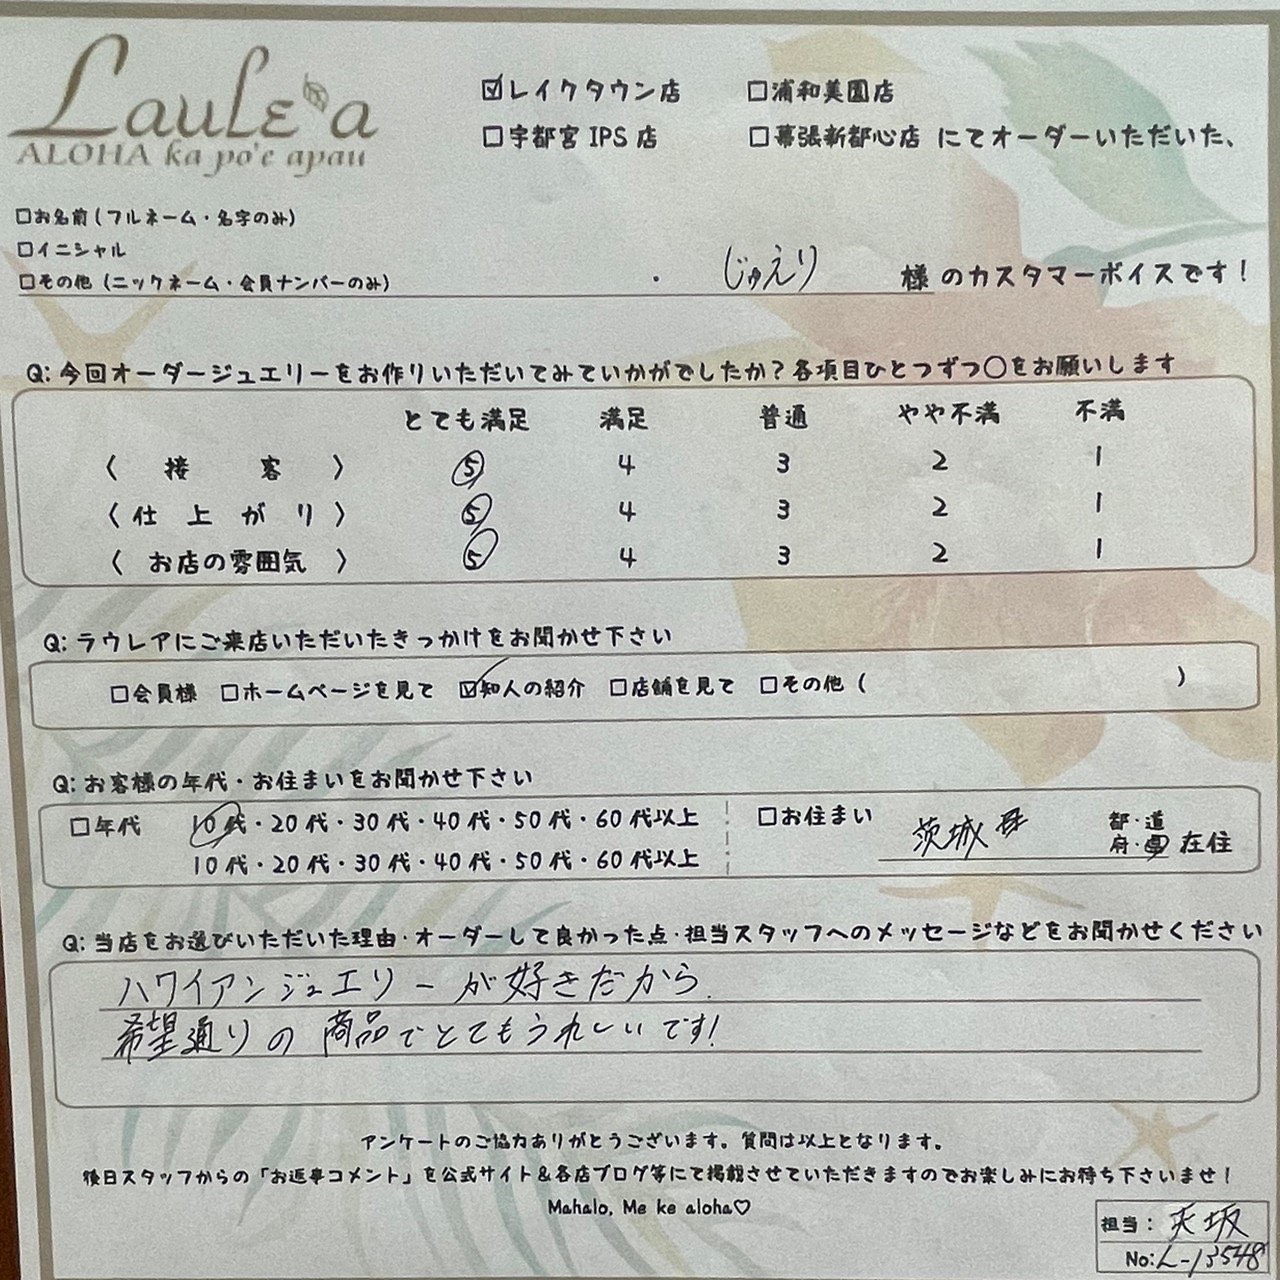 Laule'a
ALOHA ka po'e apau
☑レイクタウン店 □浦和美園店
□宇都宮 IPS 店 □幕張新都心店 にてオーダーいただいた、
□お名前(フルネーム・名字のみ)
□イニシャル
□その他(ニックネーム・会員ナンバーのみ) じゅえり 様のカスタマーボイスです!
Q:今回オーダージュエリーをお作りいただいてみていかがでしたか?各項目ひとつずつ○をお願いします
とても満足 満足 普通 やや不満 不満
〈 接 客 〉 5 4 3 2 1
〈 仕上がり 〉 5 4 3 2 1
〈 お店の雰囲気 〉 5 4 3 2 1
Q:ラウレアにご来店いただいたきっかけをお聞かせ下さい
□会員様 □ホームページを見て ☑知人の紹介 □店舗を見て □その他( )
Q:お客様の年代・お住まいをお聞かせ下さい
□年代 10代・20代・30代・40代・50代・60代以上 □お住まい 茨城県 都・道
10代・20代・30代・40代・50代・60代以上 府・県 在住
Q:当店をお選びいただいた理由・オーダーして良かった点・担当スタッフへのメッセージなどをお聞かせください
ハワイアンジュエリーが好きだから
希望通りの商品でとてもうれしいです!
アンケートのご協力ありがとうございます。質問は以上となります。
後日スタッフからの「お返事コメント」を公式サイト&各店ブログ等にて掲載させていただきますのでお楽しみにお待ち下さいませ!
Mahalo, Me ke aloha♡
担当:
No:L-13548